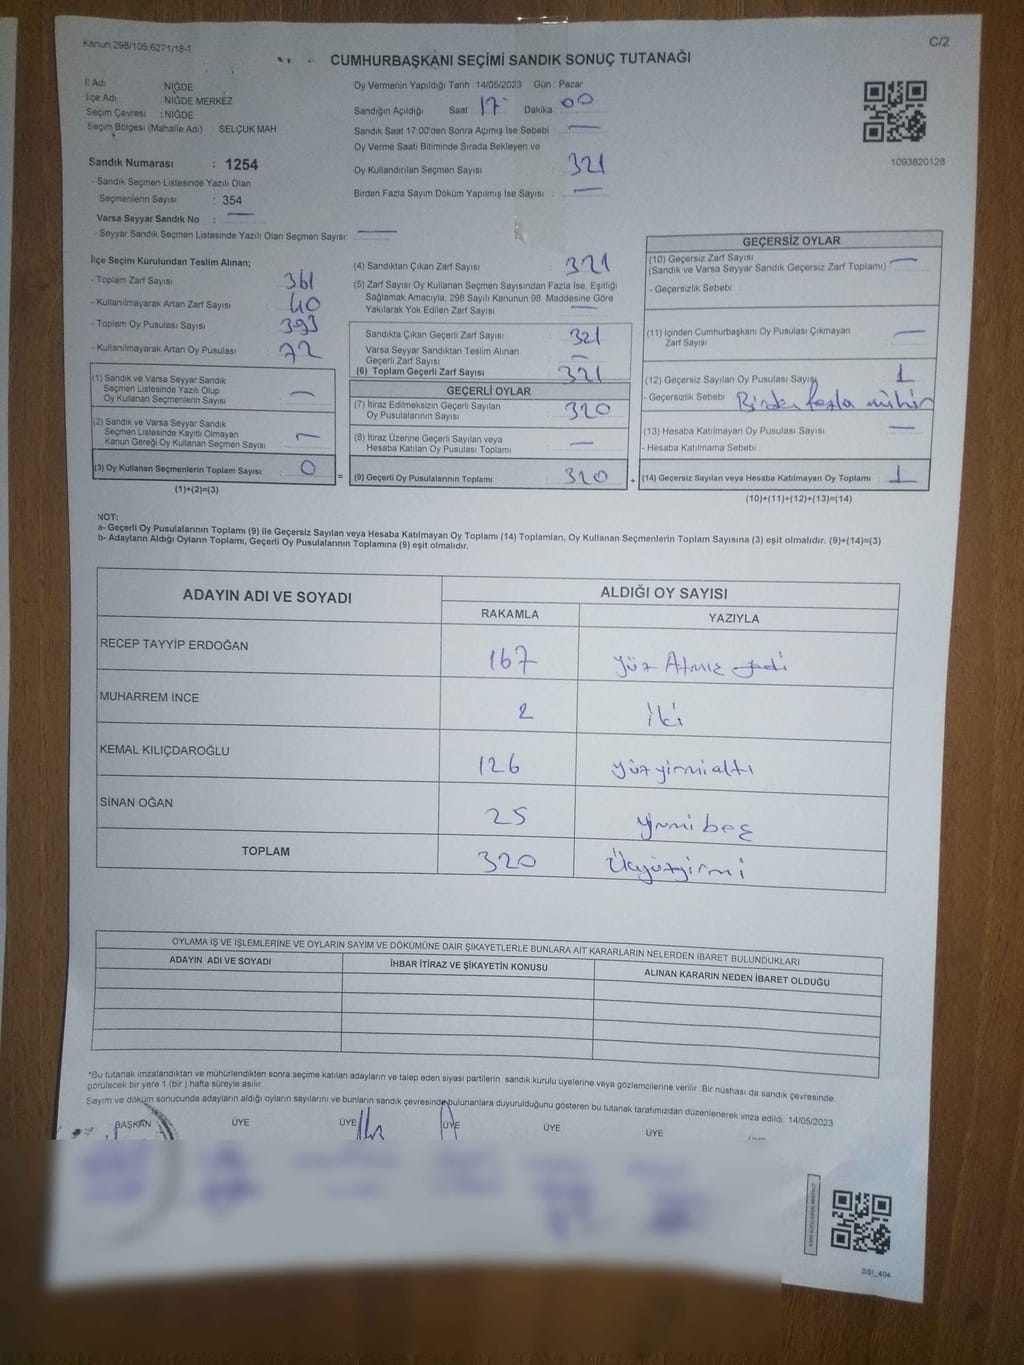 Kanun 298/105,6271/18-1
C/2
CUMHURBAŞKANI SEÇİMİ SANDIK SONUÇ TUTANAĞI
İl Adı : NİĞDE
İlçe Adı : NİĞDE MERKEZ
Seçim Çevresi : NİĞDE
Seçim Bölgesi (Mahalle Adı) : SELÇUK MAH.
Sandık Numarası : 1254
- Sandık Seçmen Listesinde Yazılı Olan
Seçmenlerin Sayısı : 354
Varsa Seyyar Sandık No : —
- Seyyar Sandık Seçmen Listesinde Yazılı Olan Seçmen Sayısı: —
Oy Vermenin Yapıldığı Tarih : 14/05/2023 Gün : Pazar
Sandığın Açıldığı Saat 17 Dakika 00
Sandık Saat 17:00'den Sonra Açılmış İse Sebebi : —
Oy Verme Saati Bitiminde Sırada Bekleyen ve
Oy Kullandırılan Seçmen Sayısı : 321
Birden Fazla Sayım Döküm Yapılmış İse Sayısı : —
1093820128
İlçe Seçim Kurulundan Teslim Alınan;
- Toplam Zarf Sayısı : 361
- Kullanılmayarak Artan Zarf Sayısı : 40
- Toplam Oy Pusulası Sayısı : 393
- Kullanılmayarak Artan Oy Pusulası : 72
(1) Sandık ve Varsa Seyyar Sandık
Seçmen Listesinde Yazılı Olup
Oy Kullanan Seçmenlerin Sayısı : —
(2) Sandık ve Varsa Seyyar Sandık
Seçmen Listesinde Kayıtlı Olmayan
Kanun Gereği Oy Kullanan Seçmen Sayısı : —
(3) Oy Kullanan Seçmenlerin Toplam Sayısı : 0
(1)+(2)=(3)
=
(4) Sandıktan Çıkan Zarf Sayısı : 321
(5) Zarf Sayısı Oy Kullanan Seçmen Sayısından Fazla İse, Eşitliği
Sağlamak Amacıyla, 298 Sayılı Kanunun 98. Maddesine Göre
Yakılarak Yok Edilen Zarf Sayısı : —
Sandıkta Çıkan Geçerli Zarf Sayısı : 321
Varsa Seyyar Sandıktan Teslim Alınan
Geçerli Zarf Sayısı : —
(6) Toplam Geçerli Zarf Sayısı : 321
GEÇERLİ OYLAR
(7) İtiraz Edilmeksizin Geçerli Sayılan
Oy Pusulalarının Sayısı : 320
(8) İtiraz Üzerine Geçerli Sayılan veya
Hesaba Katılan Oy Pusulası Toplamı : —
(9) Geçerli Oy Pusulalarının Toplamı : 320
+
GEÇERSİZ OYLAR
(10) Geçersiz Zarf Sayısı
(Sandık ve Varsa Seyyar Sandık Geçersiz Zarf Toplamı) : —
- Geçersizlik Sebebi
(11) İçinden Cumhurbaşkanı Oy Pusulası Çıkmayan
Zarf Sayısı : —
(12) Geçersiz Sayılan Oy Pusulası Sayısı : 1
- Geçersizlik Sebebi Birden fazla mühür
(13) Hesaba Katılmayan Oy Pusulası Sayısı : —
- Hesaba Katılmama Sebebi
(14) Geçersiz Sayılan veya Hesaba Katılmayan Oy Toplamı : 1
(10)+(11)+(12)+(13)=(14)
NOT:
a- Geçerli Oy Pusulalarının Toplamı (9) ile Geçersiz Sayılan veya Hesaba Katılmayan Oy Toplamı (14) Toplamları, Oy Kullanan Seçmenlerin Toplam Sayısına (3) eşit olmalıdır. (9)+(14)=(3)
b- Adayların Aldığı Oyların Toplamı, Geçerli Oy Pusulalarının Toplamına (9) eşit olmalıdır.
ADAYIN ADI VE SOYADI
ALDIĞI OY SAYISI
RAKAMLA YAZIYLA
RECEP TAYYİP ERDOĞAN 167 Yüz Atmış yedi
MUHARREM İNCE 2 İki
KEMAL KILIÇDAROĞLU 126 Yüz yirmi altı
SİNAN OĞAN 25 Yirmi beş
TOPLAM 320 Üçyüzyirmi
OYLAMA İŞ VE İŞLEMLERİNE VE OYLARIN SAYIM VE DÖKÜMÜNE DAİR ŞİKAYETLERLE BUNLARA AİT KARARLARIN NELERDEN İBARET BULUNDUKLARI
ADAYIN ADI VE SOYADI İHBAR İTİRAZ VE ŞİKAYETİN KONUSU ALINAN KARARIN NEDEN İBARET OLDUĞU
*Bu tutanak imzalandıktan ve mühürlendikten sonra seçime katılan adayların ve talep eden siyasi partilerin sandık kurulu üyelerine veya gözlemcilerine verilir. Bir nüshası da sandık çevresinde
görülecek bir yere 1 (bir) hafta süreyle asılır.
Sayım ve döküm sonucunda adayların aldığı oyların sayılarını ve bunların sandık çevresinde bulunanlara duyurulduğunu gösteren bu tutanak tarafımızdan düzenlenerek imza edildi. 14/05/2023
BAŞKAN ÜYE ÜYE ÜYE ÜYE ÜYE
SSI_404